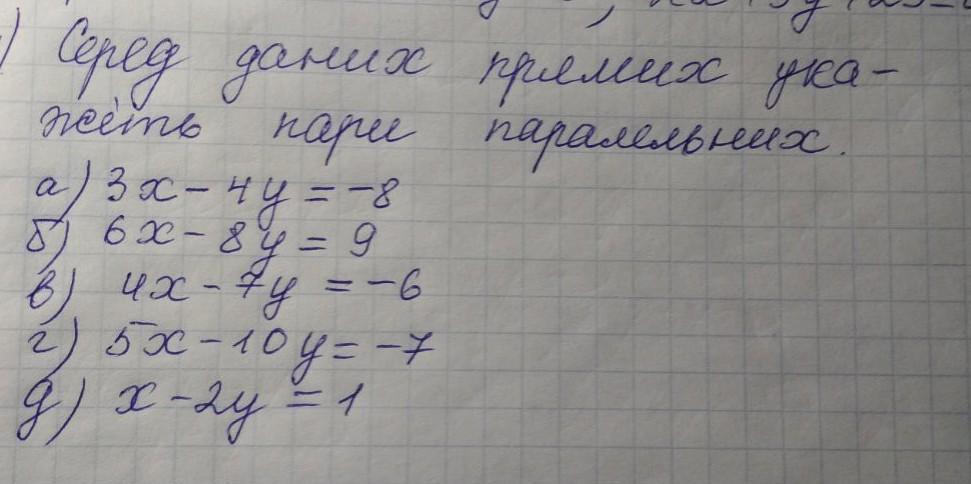 ) Серед даних прямих ука-
жіть пари паралельних.
а) 3x - 4y = -8
б) 6x - 8y = 9
в) 4x - 7y = -6
г) 5x - 10y = -7
д) x - 2y = 1